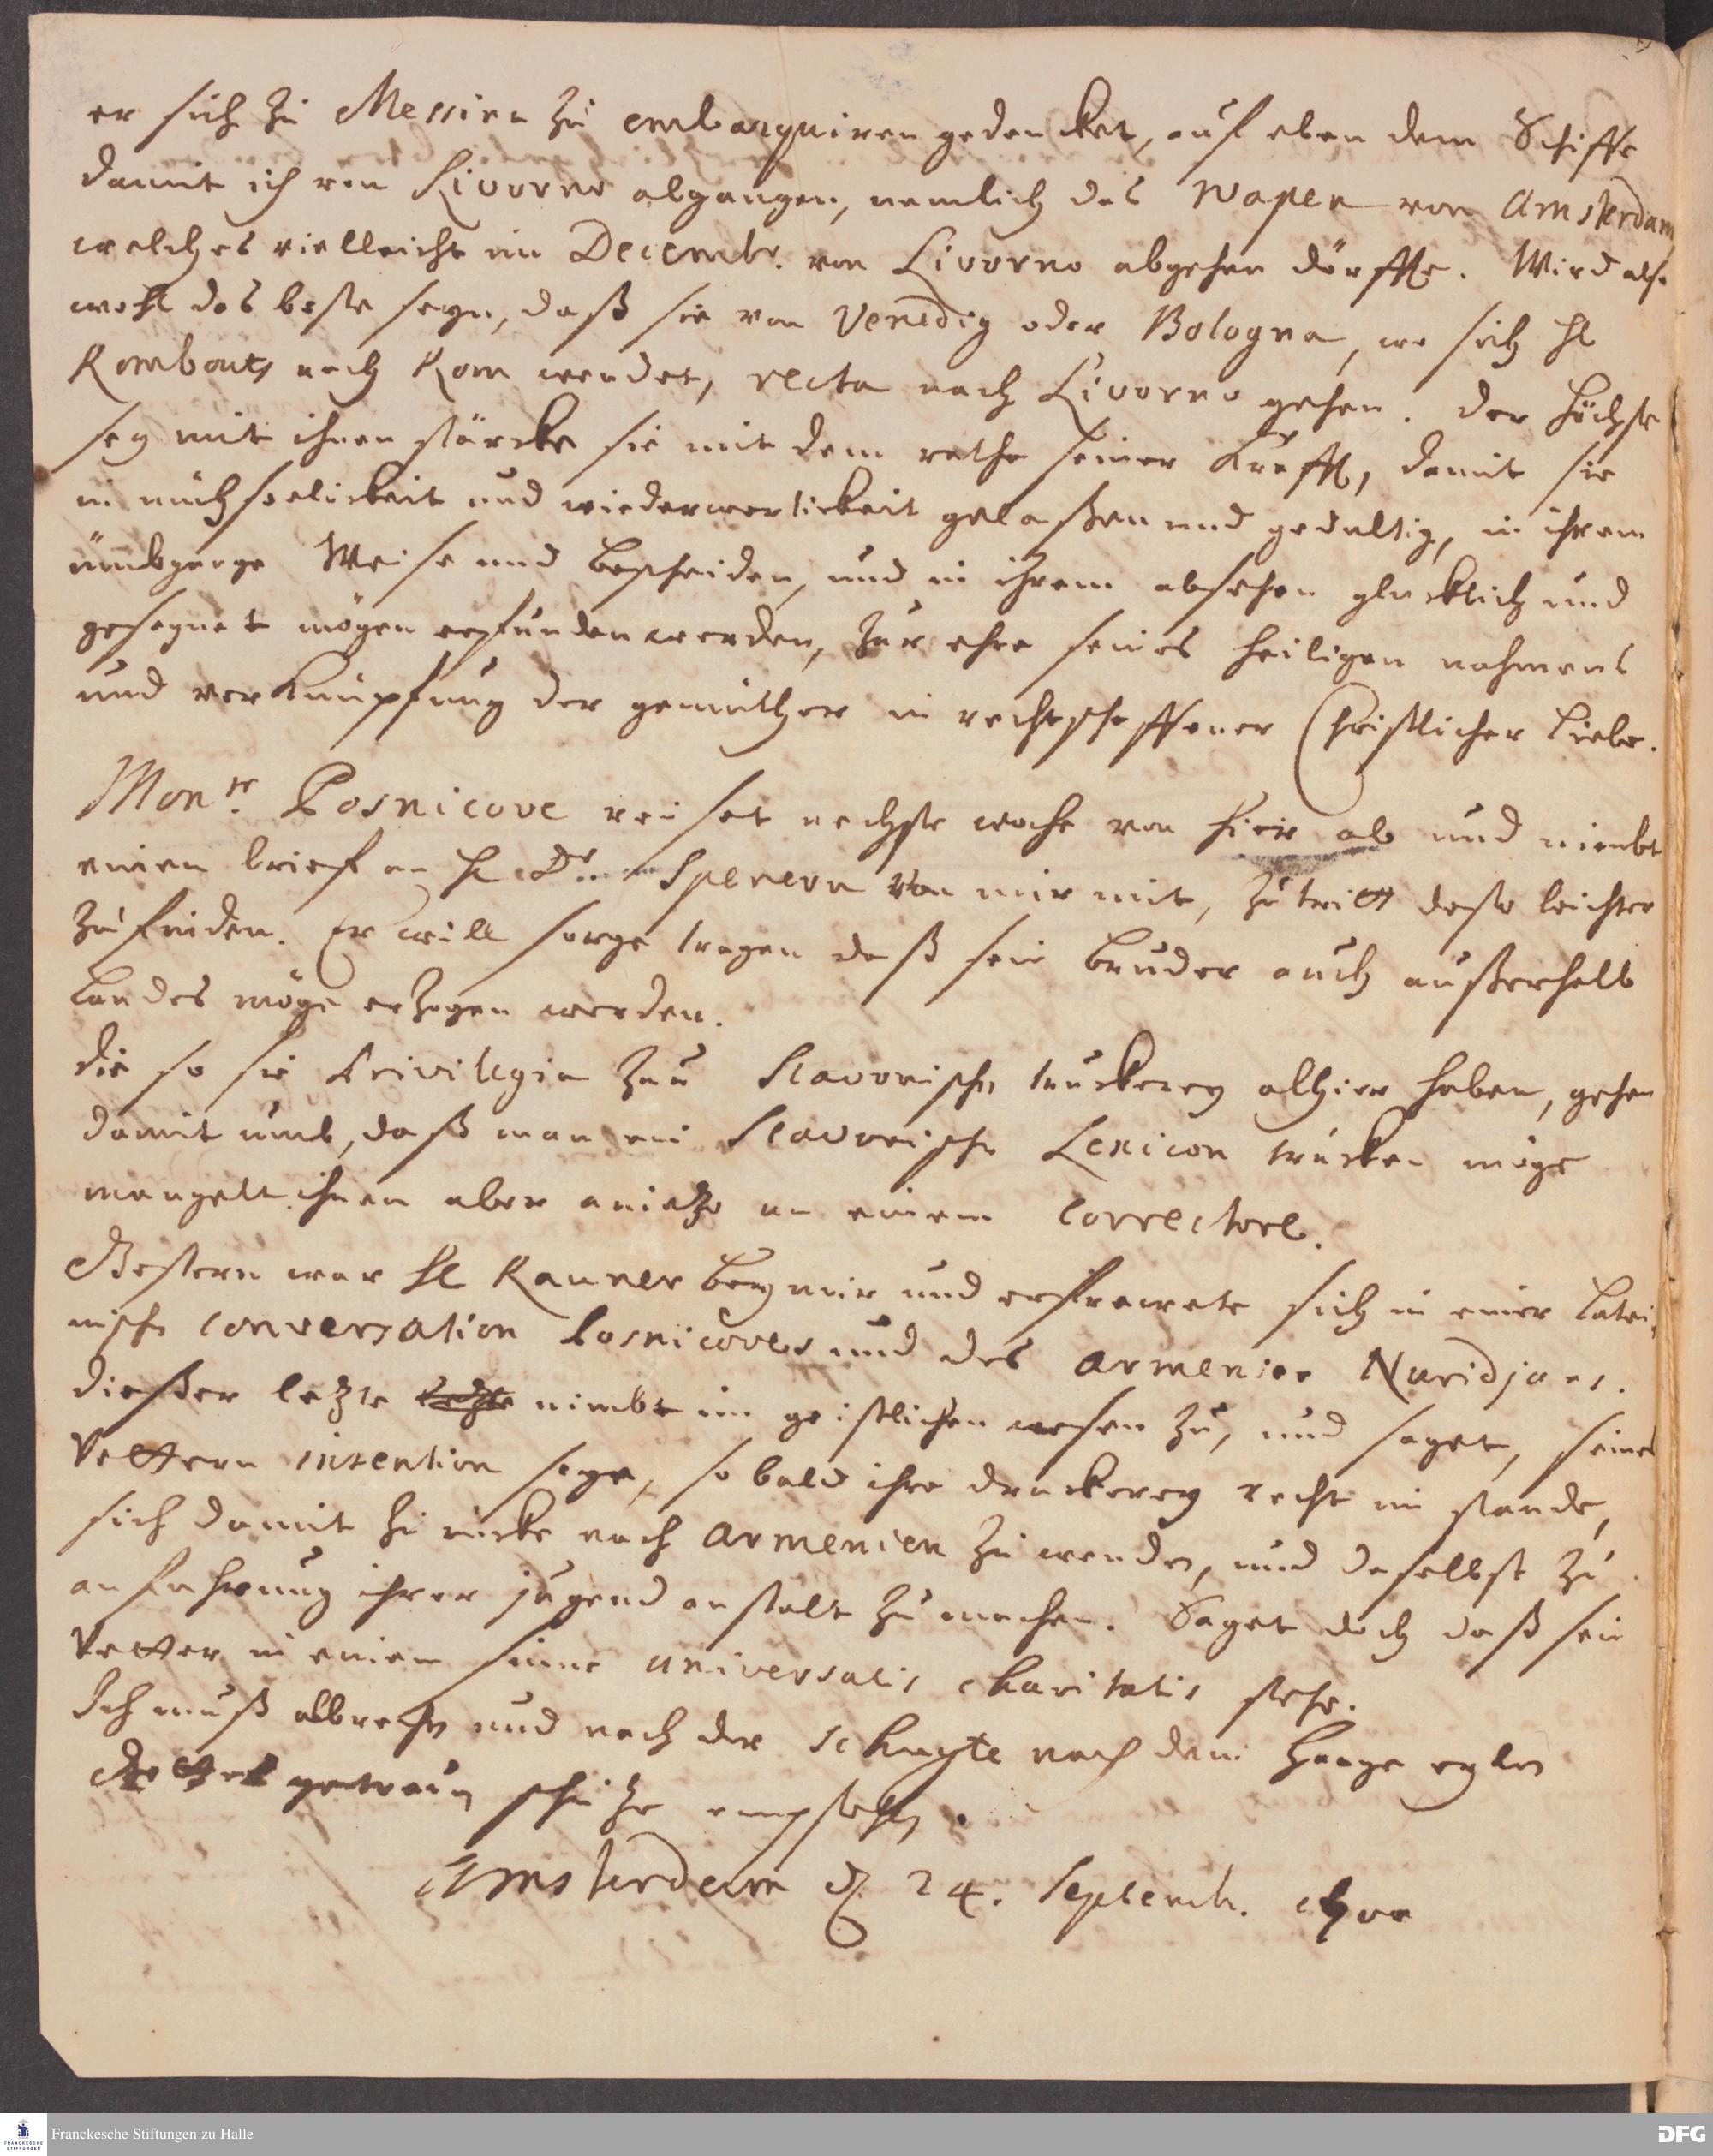 er sich zu Messina zu embarquiren gedencket, auf eben dem Schiffe
damit ich von Livorno abgangen, nemlich das Wapen von Amsterdam
welches vielleicht im Decembr. von Livorno abgehen dörffte. Wird also
wohl das beste seyn, daß sie von Venedig oder Bologna, wo sich H
Rombouts nach Rom wendet, recta nach Livorno gehen. Der Höchste
sey mit ihnen stärcke sie mit dem rathe seiner Krafft, damit sie
in mühseelickeit und wiederwertickeit gelaßen und gedultig, in ihrem
ümbgange Weise und bescheiden, und in ihrem absehen glücklich und
gesegnet mögen erfunden werden, zur ehre seines heiligen nahmens
und verknüpfung der gemüther in rechtschaffener Christlicher Liebe.
Monsr. Posnicove reiset nechste woche von hier ab und nimbt
einen brief an H Dr. Spenern von mir mit, zutritt desto leichter
zu finden. Er will sorge tragen daß sein bruder auch außerhalb
Landes möge erzogen werden.
Die so sie Privilegia zur Slavonischen truckerey alhier haben, gehen
damit umb, daß man ein Slavonische Lexicon trücken möge
mangelt ihnen aber anietzo an einem correctore.
Gestern war H Rauner bey mir und erfrewete sich in einer Latei
nischen conversation Posnicoves und des Armenier Nuridjans.
dießer letzte nimbt im geistlichen wesen zu, und saget, seines
Vettern intention seye, so bald ihre druckerey recht im stande,
sich damit zu rücke nach Armenien zu wenden, und daselbst zu
anfuhrung ihrer jugend anstalt zu machen. Saget doch daß sein
Vetter in einem sinne universalis charitatis stehe.
Ich muß abbrechen und nach der schuyte nach dem Haage eylen
getreuen schutze empfohlen.
Amsterdam d. 24. Septemb.
Franckesche Stiftungen zu Halle
DFG